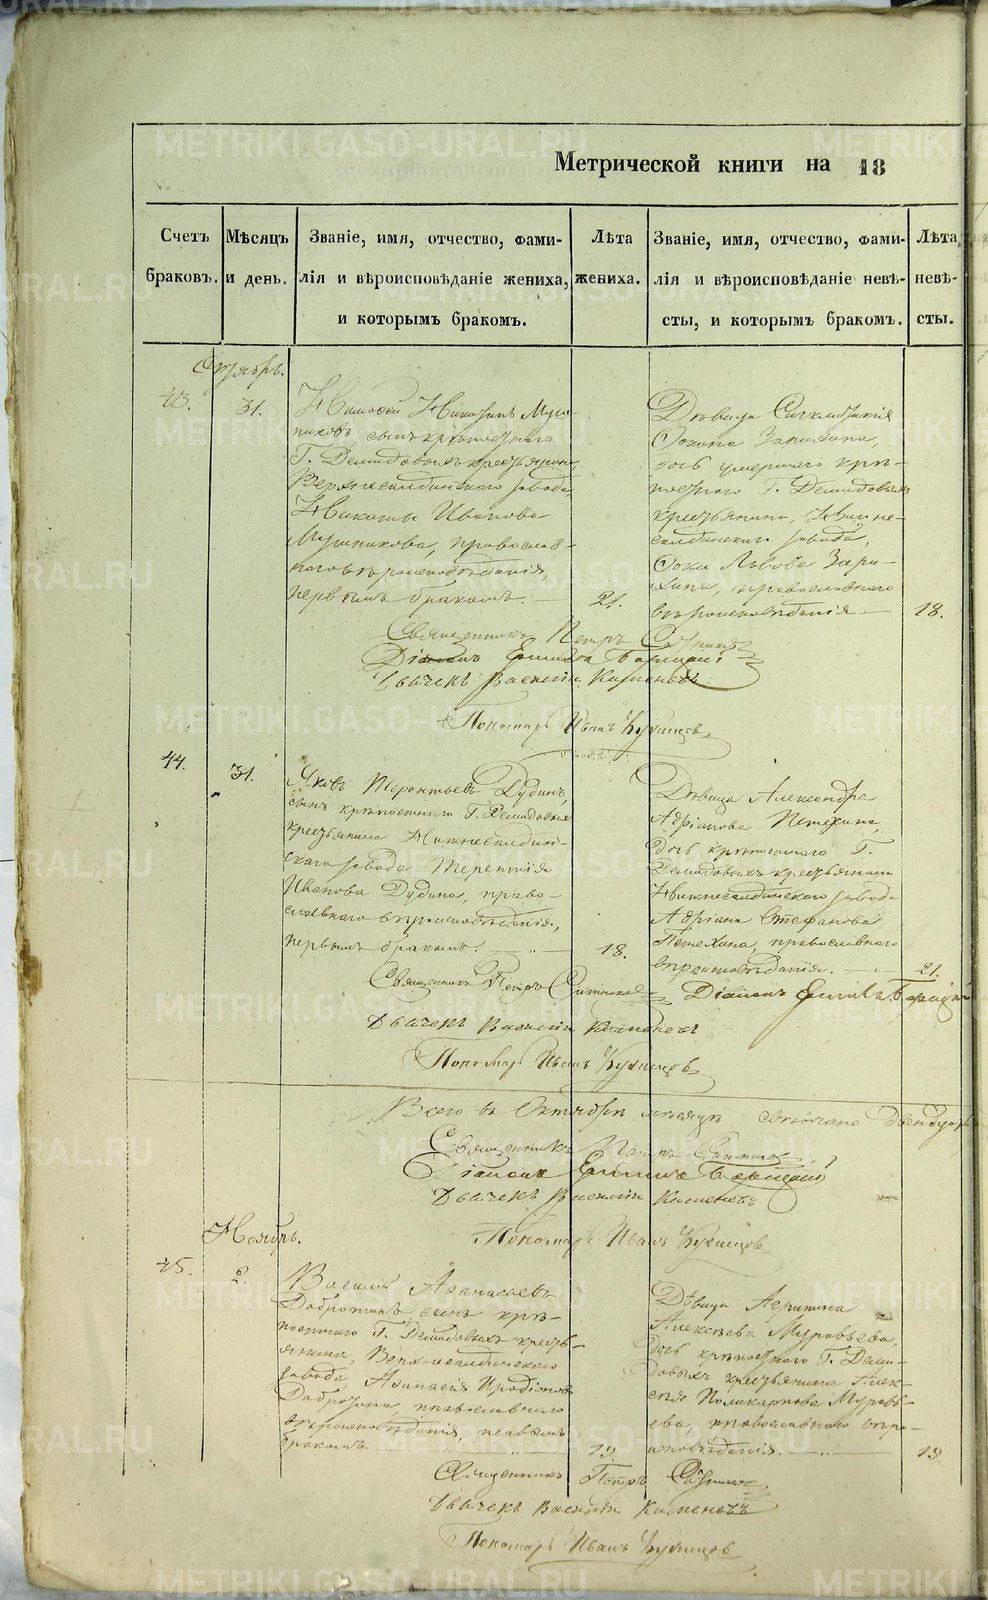 METRIKI.GASO-URAL.RU
Метрической книги на 18
Счетъ браковъ.
Мѣсяцъ и день.
Званіе, имя, отчество, фами-
лія и вѣроисповѣданіе жениха,
и которымъ бракомъ.
Лѣта жениха.
Званіе, имя, отчество, фами-
лія и вѣроисповѣданіе невѣ-
сты, и которымъ бракомъ.
Лѣта невѣ-
сты.
Октябрь.
43.
31.
Николаевъ Муш-
никовъ сынъ крѣпостнаго
Г. Демидовыхъ крестьянина
Верхнесалдинскаго завода
Николы Иванова
Мушникова, православ-
наго вѣроисповѣданія,
первымъ бракомъ.
21.
Дѣвица
Зорихина,
дочь умершаго крѣ-
постнаго Г. Демидовыхъ
крестьянина, Нижне-
салдинскаго завода,
Львова Зори-
хина, православнаго
вѣроисповѣданія
18.
Священникъ Петръ
Діаконъ
Дьячекъ Василій Каменевъ
Пономарь Иванъ Кузнецовъ
44.
31.
Яковъ Терентьевъ Дудинъ,
сынъ крѣпостнаго Г. Демидовыхъ
крестьянина Нижнесалдин-
скаго завода Терентія
Иванова Дудина, право-
славнаго вѣроисповѣданія,
первымъ бракомъ.
18.
Дѣвица Александра
Адріанова Петехина,
дочь крѣпостнаго Г.
Демидовыхъ крестьянина
Нижнесалдинскаго завода
Адріана Стефанова
Петехина, православнаго
вѣроисповѣданія.
21.
Священникъ Петръ
Діаконъ
Дьячекъ Василій Каменевъ
Пономарь Иванъ Кузнецовъ
Всего въ Октябрѣ мѣсяцѣ
Священникъ Петръ
Діаконъ
Дьячекъ Василій Каменевъ
Пономарь Иванъ Кузнецовъ
Ноябрь.
45.
2.
Василій Афанасьевъ
Добротинъ сынъ крѣ-
постнаго Г. Демидовыхъ кресть-
янина, Верхнесалдинскаго
завода Афанасія Иродіонова
православнаго
вѣроисповѣданія, первымъ
бракомъ.
19.
Дѣвица Агрипина
Алексѣева Муравьева,
дочь крѣпостнаго Г. Деми-
довыхъ крестьянина Алек-
сѣя Поликарпова Муравь-
ева, православнаго вѣро-
исповѣданія.
19.
Священникъ Петръ
Дьячекъ Василій Каменевъ
Пономарь Иванъ Кузнецовъ